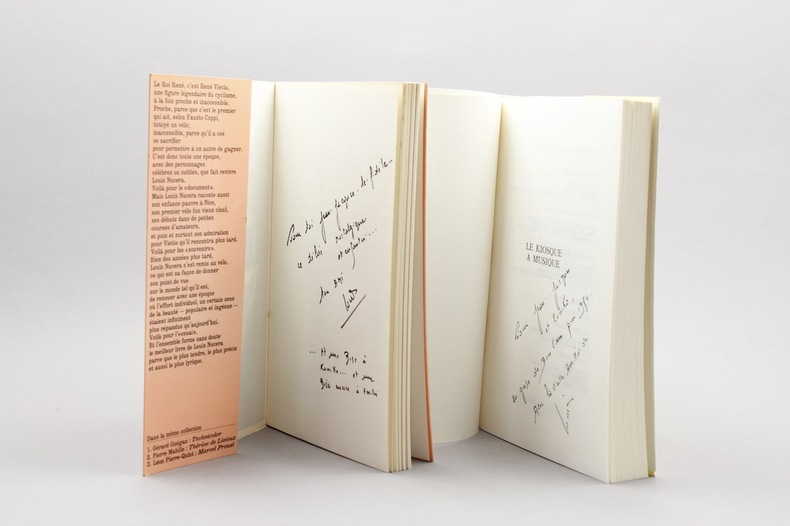 Le Roi René, c'est René Vietto,
une figure légendaire du cyclisme,
à la fois proche et inaccessible.
Proche, parce que c'est le premier
qui ait, selon Fausto Coppi,
tutoyé un vélo;
inaccessible, parce qu'il a osé
se sacrifier
pour permettre à un autre de gagner.
C'est donc toute une époque,
avec des personnages
célèbres ou oubliés, que fait revivre
Louis Nucera.
Voilà pour le «document».
Mais Louis Nucera raconte aussi
son enfance pauvre à Nice,
son premier vélo (un vieux clou),
ses débuts dans de petites
courses d'amateurs,
et puis et surtout son admiration
pour Vietto qu'il rencontrera plus tard.
Voilà pour les «souvenirs».
Bien des années plus tard,
Louis Nucera s'est remis au vélo,
ce qui est sa façon de donner
son point de vue
sur le monde tel qu'il est,
de renouer avec une époque
où l'effort individuel, un certain sens
de la beauté — populaire et ingénue —
étaient infiniment
plus répandus qu'aujourd'hui.
Voilà pour l'«essai».
Et l'ensemble forme sans doute
le meilleur livre de Louis Nucera
parce que le plus tendre, le plus précis
et aussi le plus lyrique.
Dans la même collection
1. Gérard Guégan : Technicolor
2. Pierre Mabille : Thérèse de Lisieux
3. Léon Pierre-Quint : Marcel Proust
Pour toi Jean-Jacques
nostalgique
et
... et une Bise à
et une
Bise
LE KIOSQUE
A MUSIQUE
Pour Jean-Jacques
et
1984